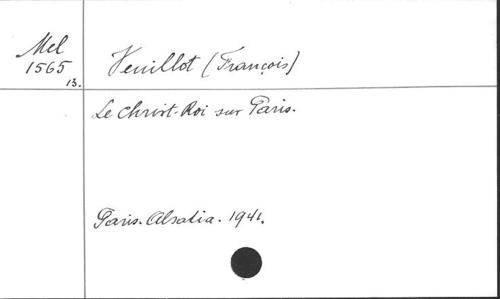 Mel
1565
13.
Veuillot (François)
Le Christ-Roi sur Paris.
Paris. Alsatia. 1941.